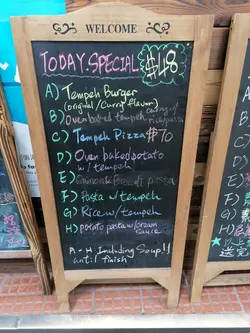 WELCOME
TODAY.SPECIAL $48
A) Tempeh Burger
(original/Curry flavor)
B) Oven baked tempeh
C) Tempeh Pizza $70
D) Oven baked potato
w/ tempeh
E) pasta
F) Pasta w/tempeh
G) Rice w/tempeh
H) potato pasta w/cream
sauce
A - H Including Soup!!
until finish